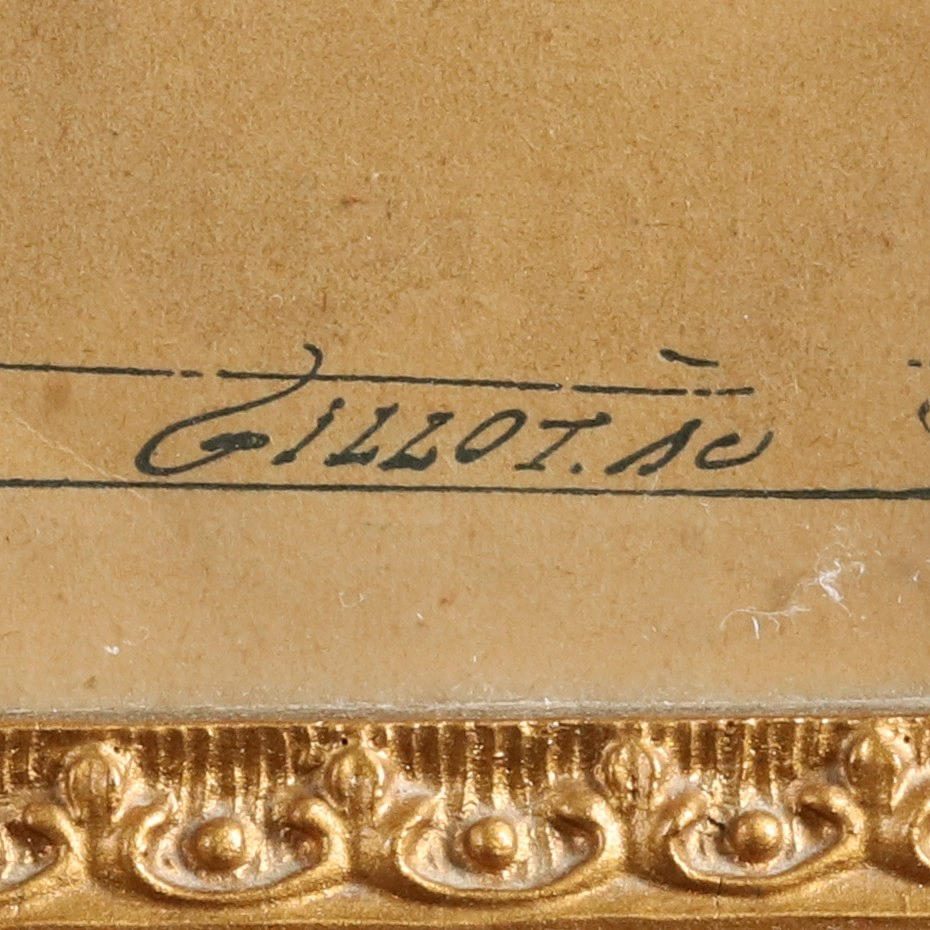 GILLOT. Sc